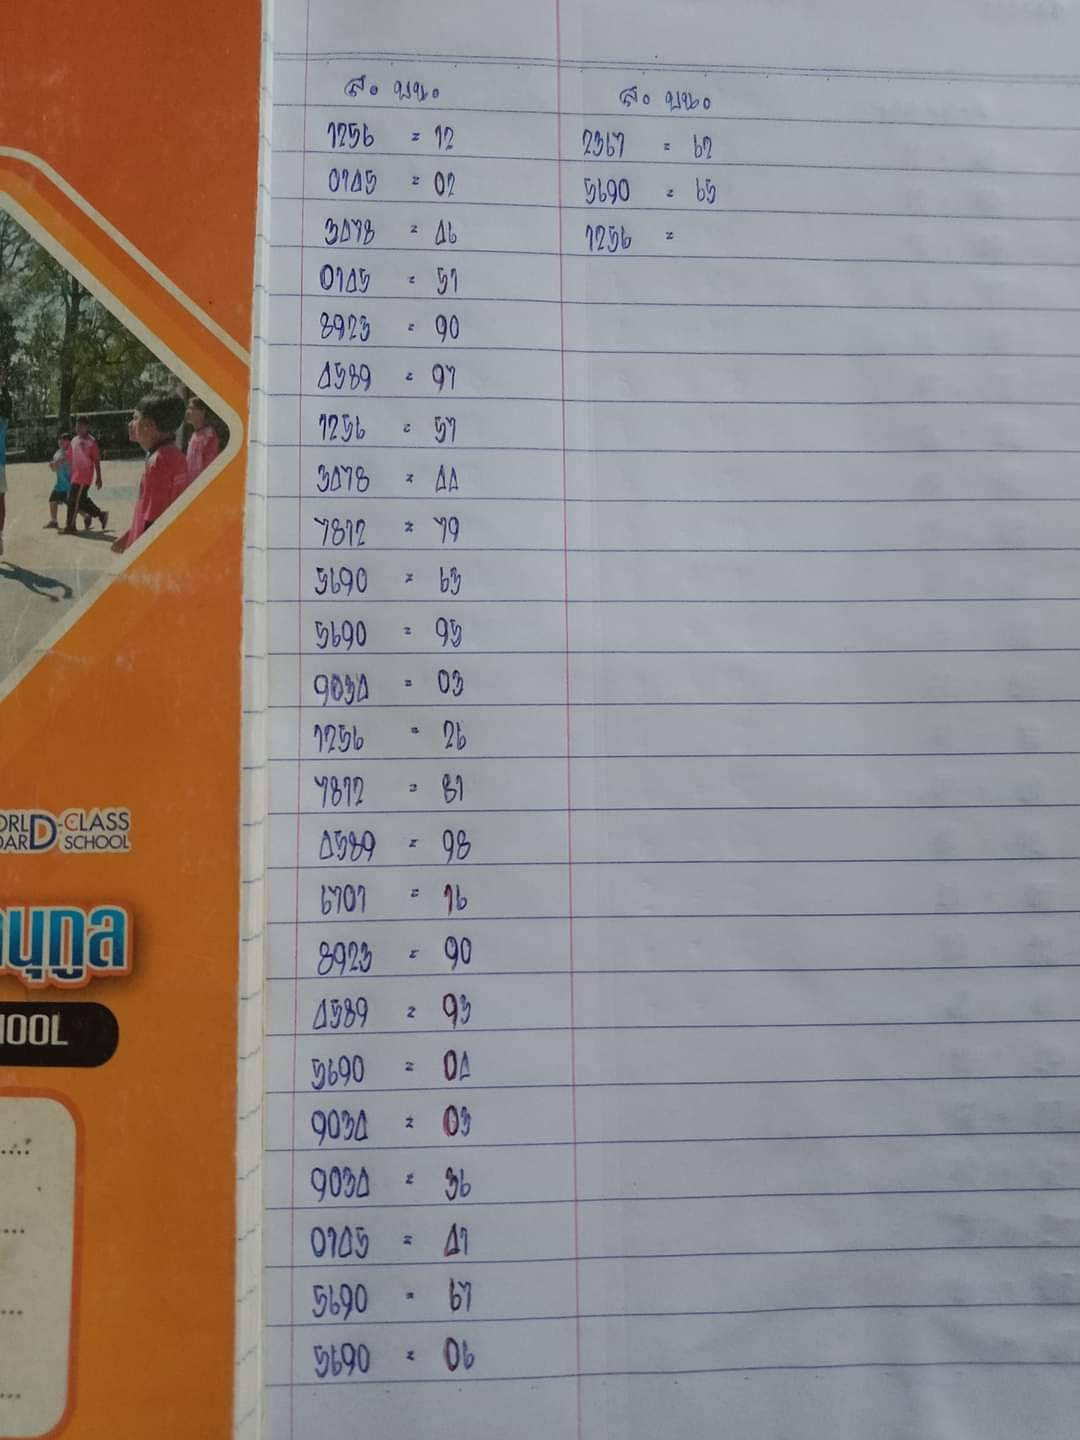 ส. บน.
1256 = 12
0145 = 02
3478 = 46
0145 = 51
8923 = 90
4589 = 97
1256 = 57
3478 = 44
7812 = 79
5690 = 63
5690 = 95
9034 = 03
1256 = 26
7812 = 81
4589 = 98
6701 = 16
8923 = 90
4589 = 93
5690 = 04
9034 = 03
9034 = 36
0145 = 41
5690 = 67
5690 = 06
ส. บน.
2367 = 62
5690 = 65
1256 =
CLASS
SCHOOL
นุกูล